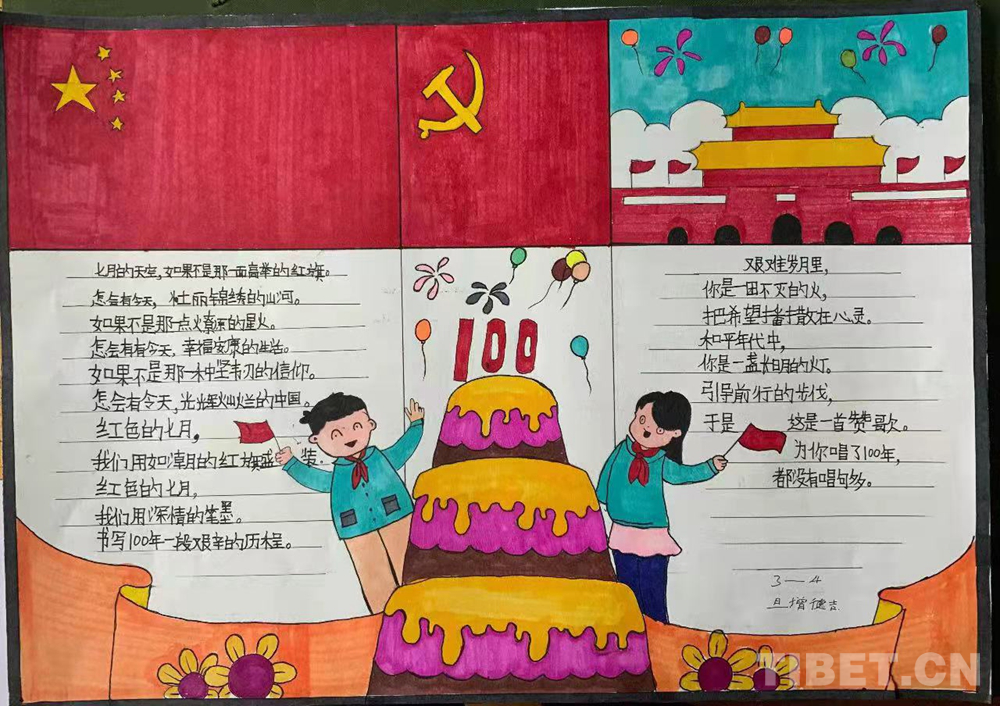 七月的天空,如果不是那一面高举的红旗。
怎会有今天,壮丽锦绣的山河。
如果不是那一点燎原的星火。
怎会有有今天,幸福安康的生活。
如果不是那一种坚韧的信仰。
怎会有今天,光辉灿烂的中国。
红色的七月,
我们用如潮的红旗 装。
红色的七月,
我们用深情的笔墨。
书写100年一段艰辛的历程。
100
艰难岁月里,
你是一団不灭的火,
把希望播散在心灵。
和平年代中,
你是一盏火旦月的灯。
引导前行的步伐,
于是 这是一首赞歌欠。
为你唱了100年,
都没有唱够。
3—4
旦增德吉
TIBET.CN